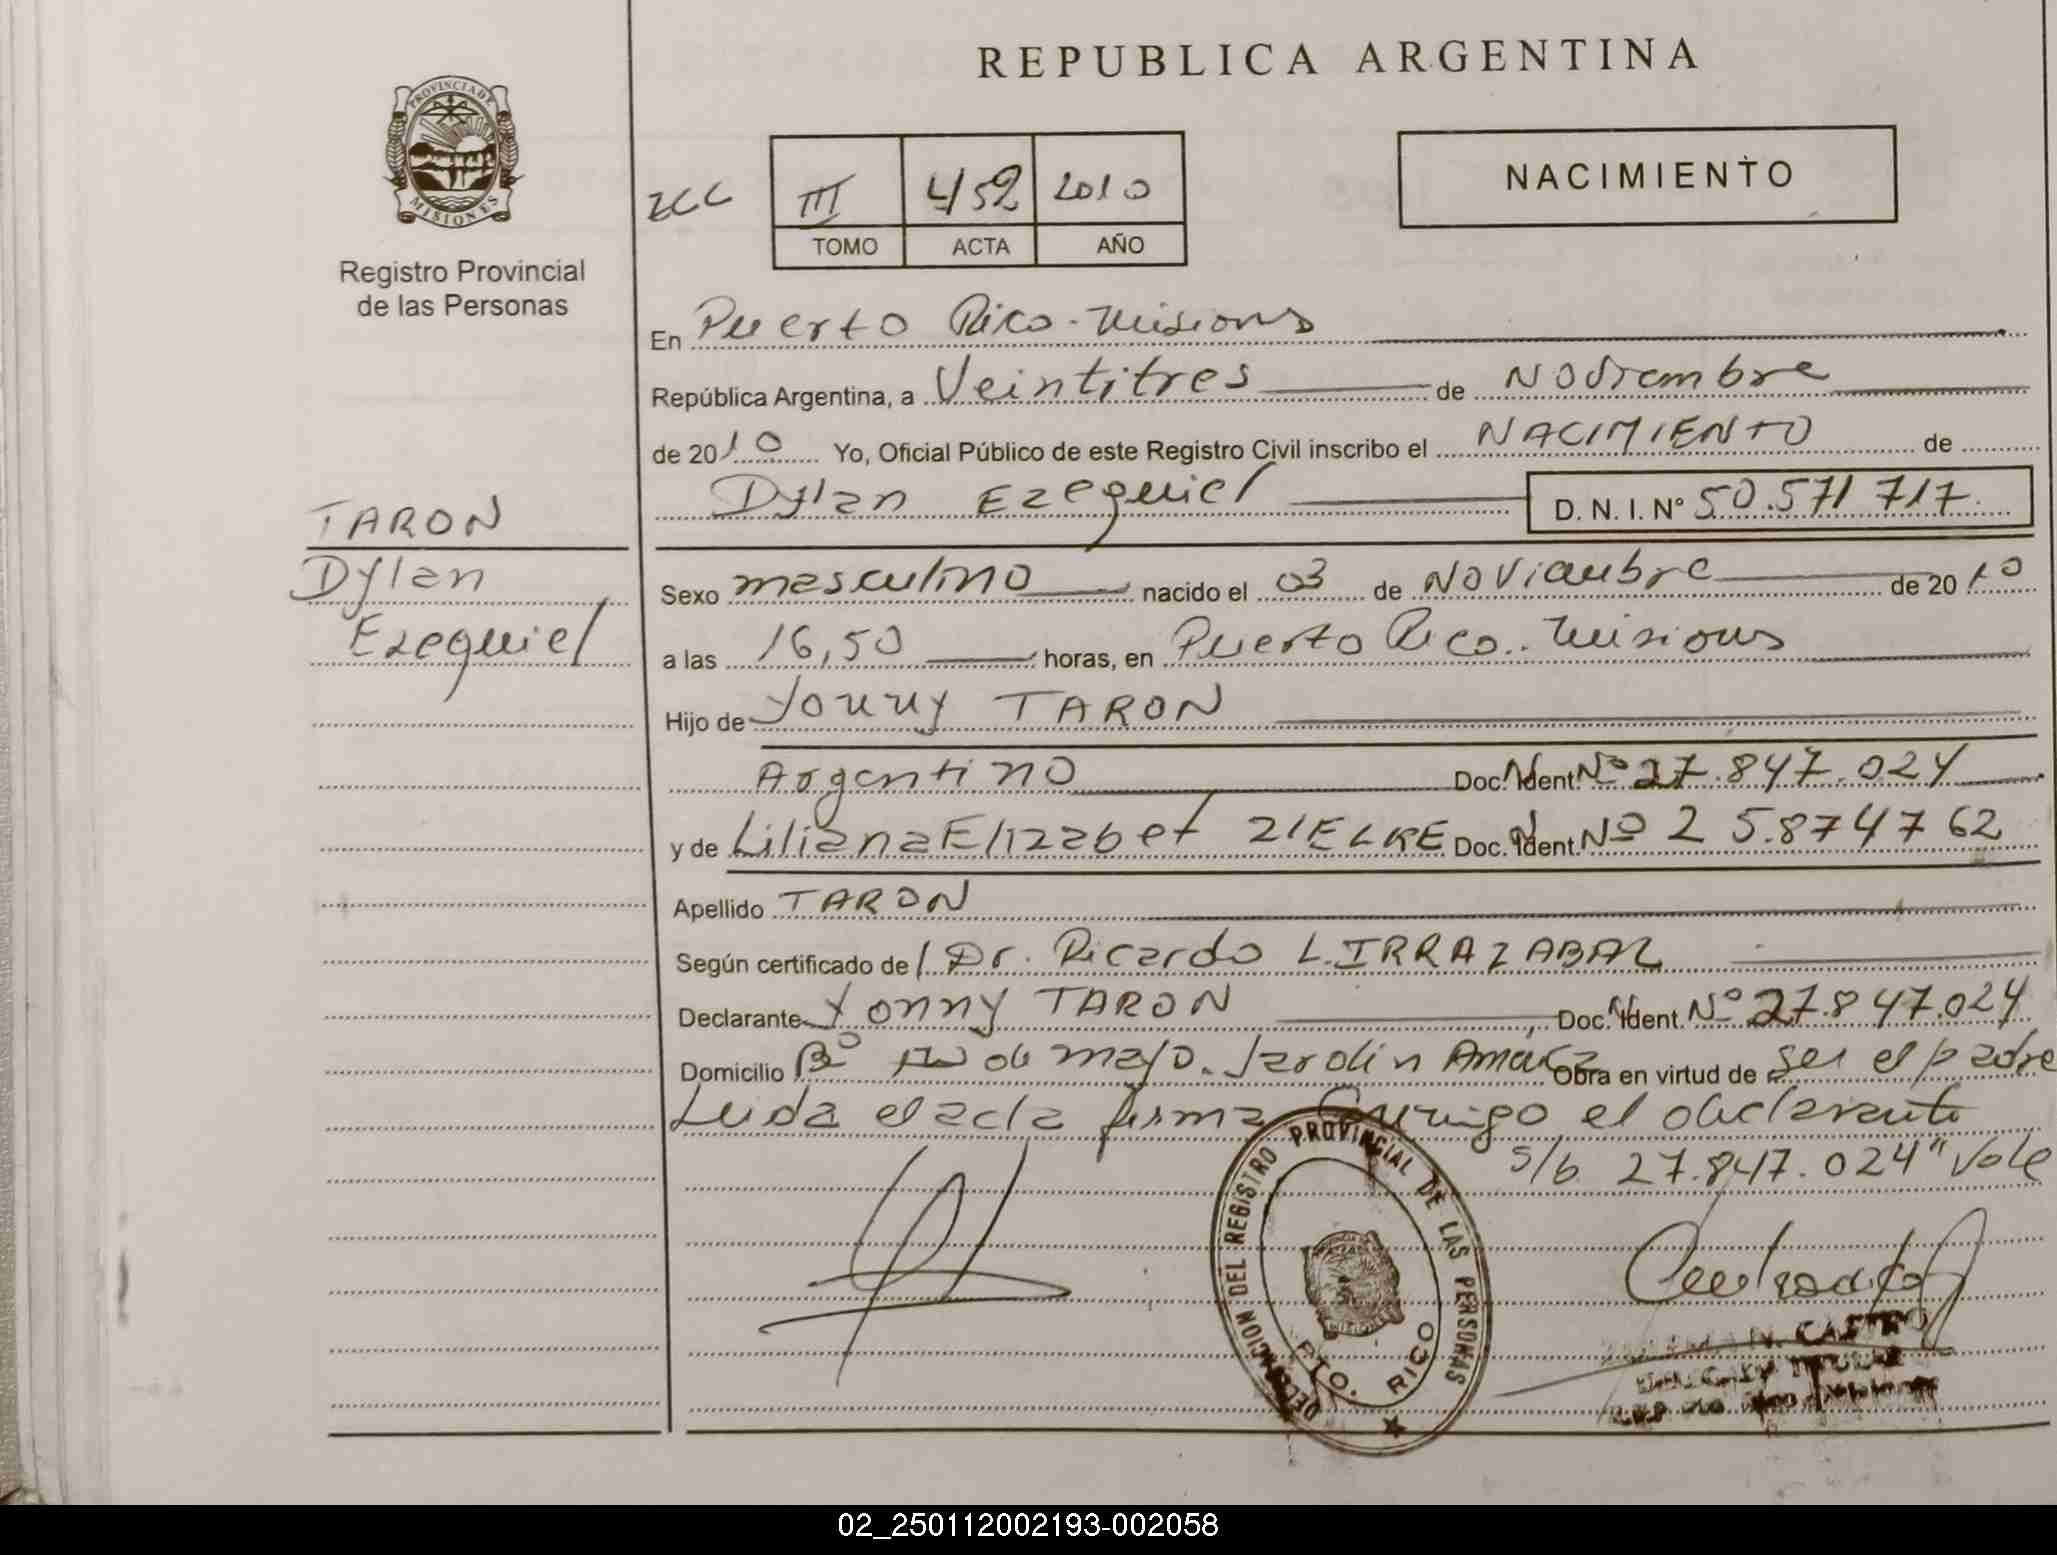 REPUBLICA ARGENTINA
PROVINCIA DE MISIONES
Registro Provincial
de las Personas
III 452 2010
TOMO ACTA AÑO
NACIMIENTO
En Puerto Rico - Misiones
República Argentina, a Veintitres de Noviembre
de 2010 Yo, Oficial Público de este Registro Civil inscribo el NACIMIENTO de
Dylan Ezequiel D. N. I. N° 50.571 717.
TARON
Dylan
Ezequiel
Sexo masculino nacido el 03 de Noviembre de 2010
a las 16,50 horas, en Puerto Rico - Misiones
Hijo de Yonny TARON
Argentino Doc. Ident. Nº 27.847.024
y de Liliana Elizabet ZIELKE Doc. Ident. Nº 25.874762
Apellido TARON
Según certificado de Dr. Ricardo L. IRRAZABAL
Declarante Yonny TARON, Doc. Ident. Nº 27.847.024
Domicilio Bº de mayo. Jardin America Obra en virtud de ser el padre
Leida el acta firma Conmigo el declarante
s/b 27.847.024" Vale
DELEGACION DEL REGISTRO PROVINCIAL DE LAS PERSONAS
PTO. RICO
N. CASTRO
02_250112002193-002058